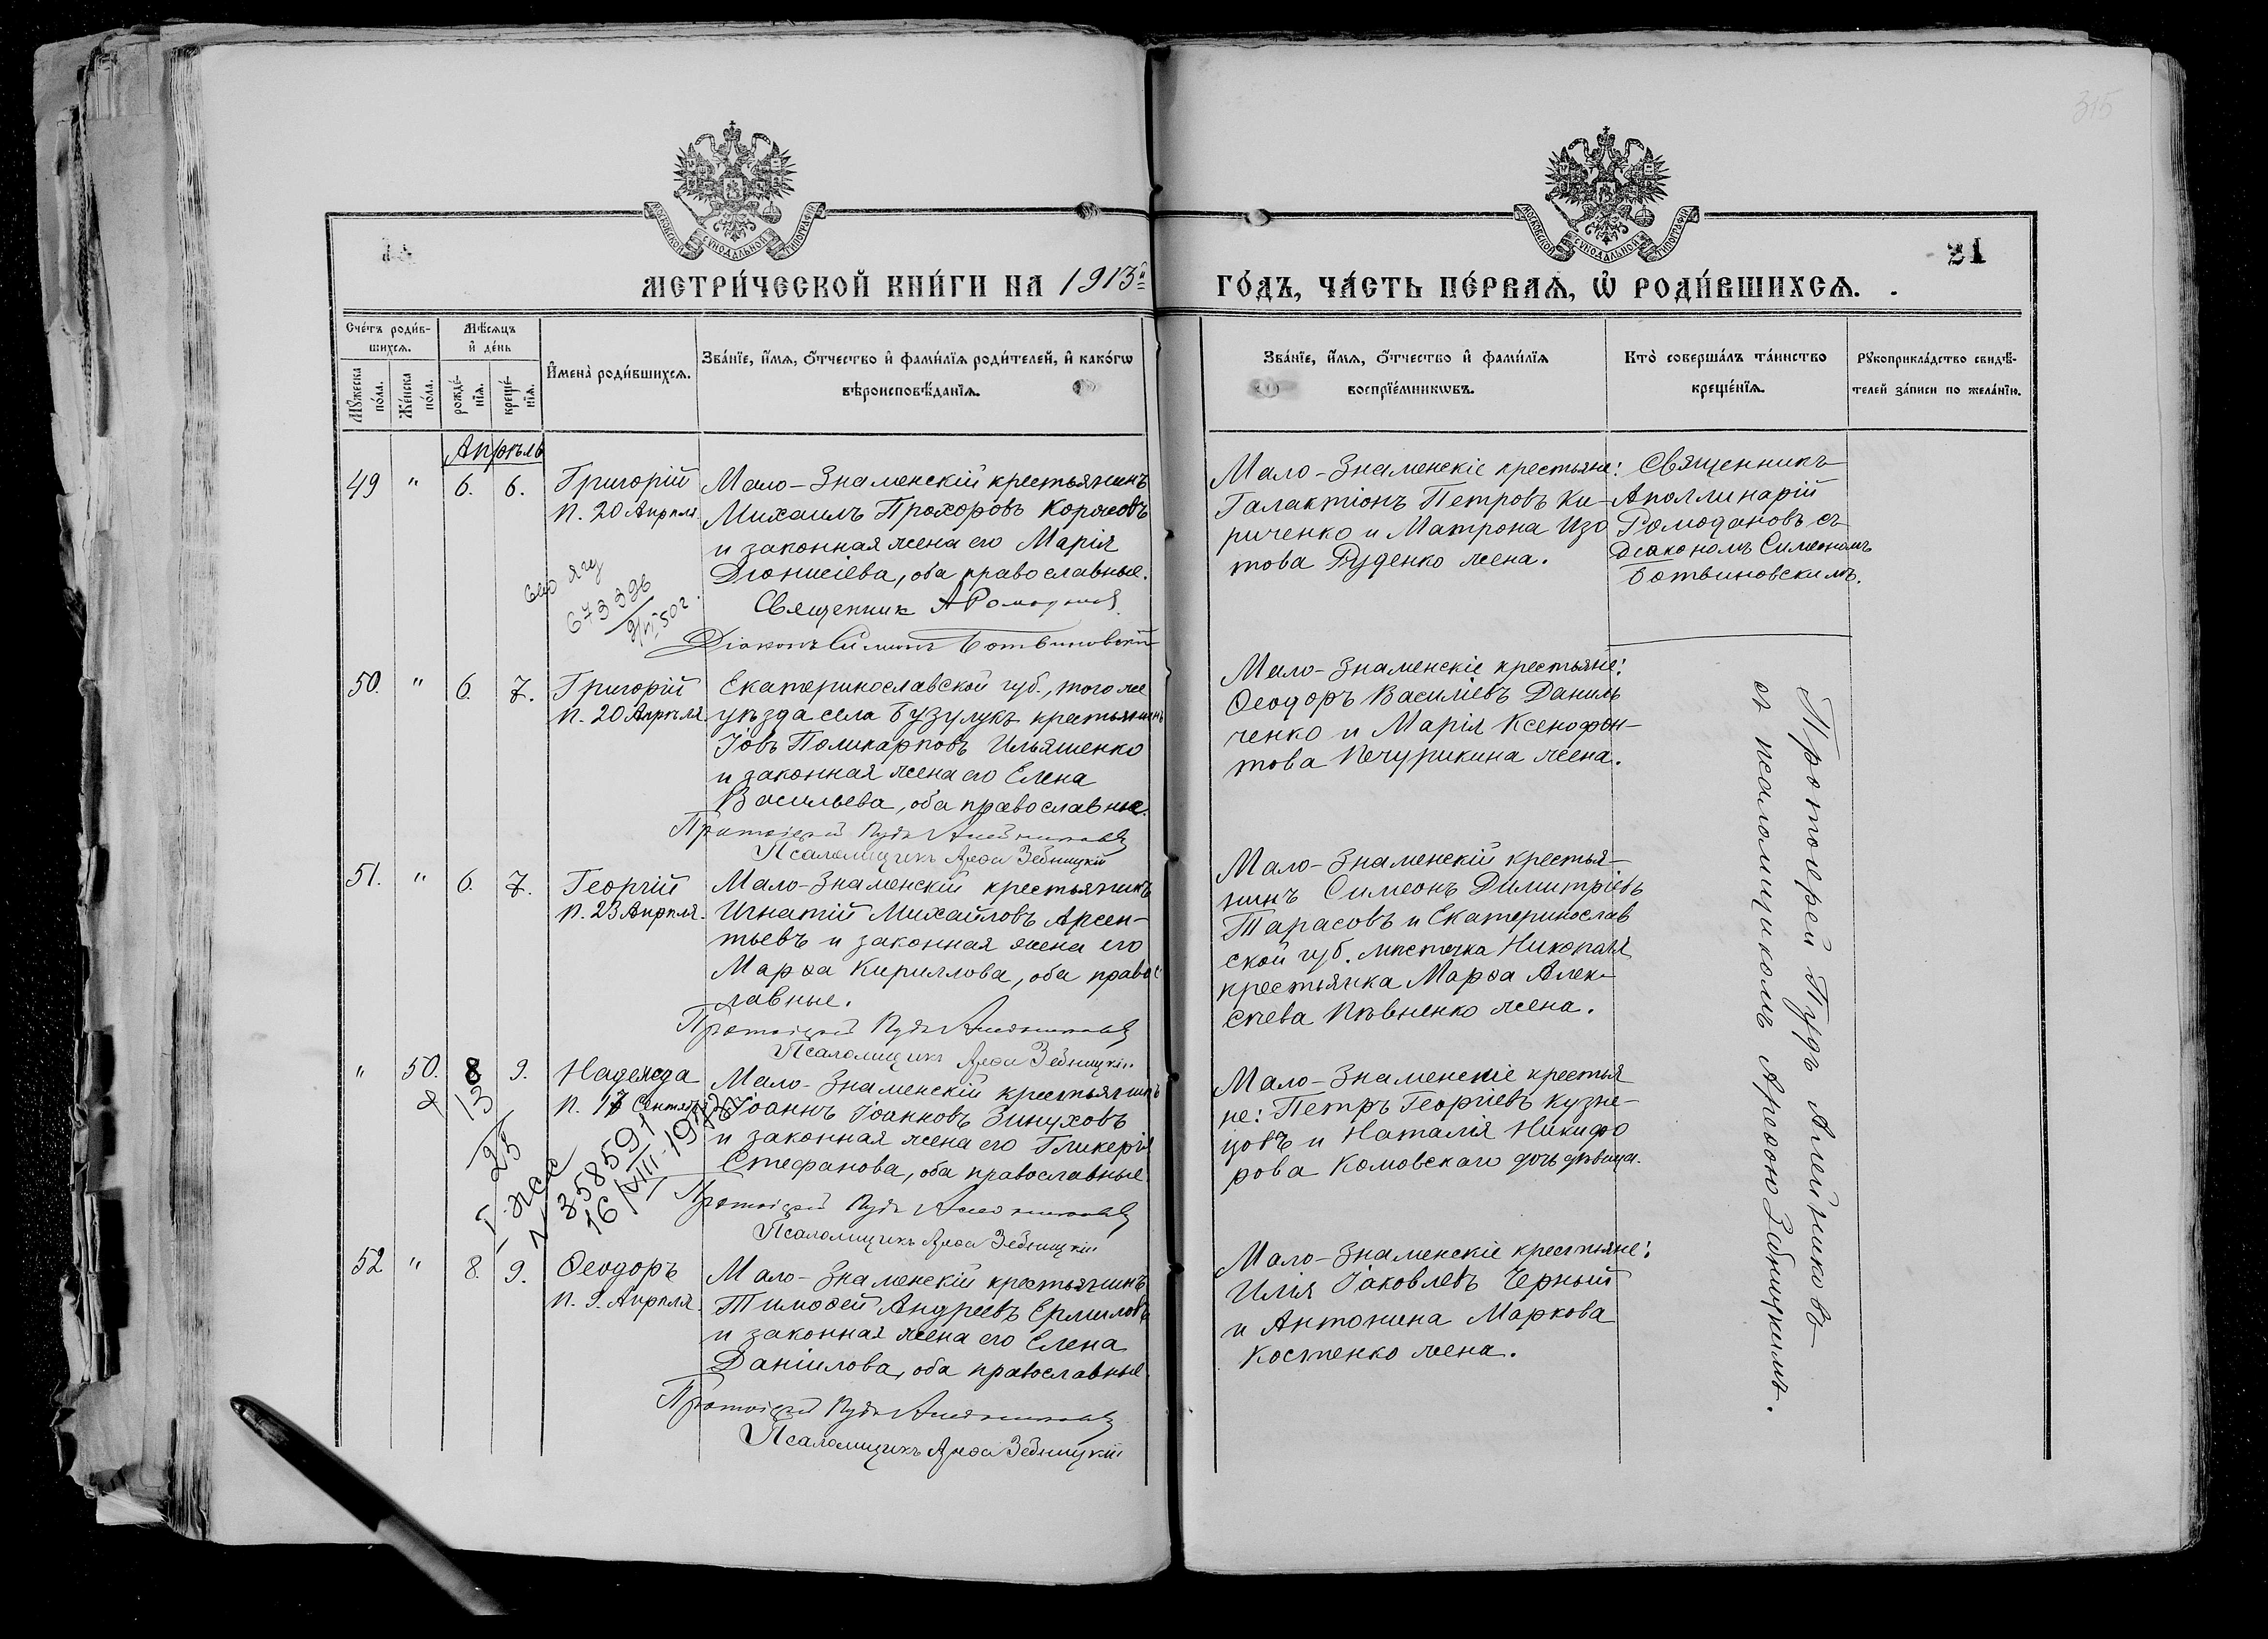 315
МОСКОВСКОЙ СУНОДАЛЬНОЙ ТИПОГРАФІИ
МОСКОВСКОЙ СУНОДАЛЬНОЙ ТИПОГРАФІИ
21
МЕТРИ́ЧЕСКОЙ КНИ́ГИ НА 1913й
ГО́ДЪ, ЧА́СТЬ ПЕ́РВАѦ, Ѡ҆ РОДИ́ВШИХСѦ.
Сче́тъ роди́в-
шихсѧ.
Мѣ́сѧцъ
и҆ де́нь
Мꙋ́жеска
по́ла.
Же́нска
по́ла.
рожде́-
нїѧ.
креще́-
нїѧ.
И҆мена̀ роди́вшихсѧ.
Зва́нїе, и҆́мѧ, ѻ҆́тчество и҆ фами́лїѧ роди́телей, и҆ како́гѡ
вѣроисповѣ́данїѧ.
Зва́нїе, и҆́мѧ, ѻ҆́тчество и҆ фами́лїѧ
воспрїе́мникѡвъ.
Кто̀ соверша́лъ та́инство
креще́нїѧ.
Рꙋкоприкла́дство свидѣ́-
телей за́писи по жела́нїю.
Апрѣль
49 " 6. 6. Григорій
п. 20 Апрѣля.
Мало-Знаменскій крестьянинъ
Михаилъ Прохоровъ
и законная жена его Марія
Діонисіева, оба православные.
Священник А Ромоданов
Діаконъ Симеонъ Ботвиновскій
673396
Мало-Знаменскіе крестьяне:
Галактіонъ Петровъ Ки-
риченко и Матрона Изо
това Руденко жена.
Священникъ
Аполлинарій
Ромодановъ съ
Діакономъ Симеономъ
Ботвиновскимъ.
50. " 6. 7. Григорій
п. 20 Апрѣля
Екатеринославской губ., того же
уѣзда села Бузулукъ крестьянинъ
Іовъ Поликарповъ Ильяшенко
и законная жена его Елена
Васильева, оба православные.
Протоіерей Пудъ Алейниковъ
Псаломщикъ Арѳа Зебницкій
Мало-Знаменскіе крестьяне:
Ѳеодоръ Василіевъ Даниль
ченко и Марія Ксенофон-
това Печурикина жена.
51. " 6. 7. Георгій
п. 23 Апрѣля.
Мало-Знаменскій крестьянинъ
Игнатій Михайловъ Арсен-
тьевъ и законная жена его
Марѳа Кириллова, оба правос
лавные.
Протоіерей Пудъ Алейниковъ
Псаломщикъ Арѳа Зебницкій
Мало-Знаменскій крестья-
нинъ Симеонъ Димитріевъ
Тарасовъ и Екатеринослав
ской губ. мѣстечка Никополя
крестьянка Марѳа Алек-
сѣева Пѣвненко жена.
" 50. 8 9. Надежда
п. 17 Сентября
Мало-Знаменскій крестьянинъ
Іоаннъ Іоанновъ Зинуховъ
и законная жена его Гликерія
Стефанова, оба православные.
Протоіерей Пудъ Алейниковъ
Псаломщикъ Арѳа Зебницкій
13
25
I ЖСС
N 358591
16/VIII-1972
Мало-Знаменскіе крестья
не: Петръ Георгіевъ Кузне-
цовъ и Наталія Никифо
рова Комовскаго дочь дѣвица.
52 " 8. 9. Ѳеодоръ
п. 9. Апрѣля.
Мало-Знаменскій крестьянинъ
Тимоѳей Андреевъ Ермиловъ
и законная жена его Елена
Даніилова, оба православные.
Протоіерей Пудъ Алейниковъ
Псаломщикъ Арѳа Зебницкій
Мало-Знаменскіе крестьяне:
Илія Іаковлевъ Черный
и Антонина Маркова
Костенко жена.
Протоіерей Пудъ Алейниковъ
съ псаломщикомъ Арѳою Зебницкимъ.